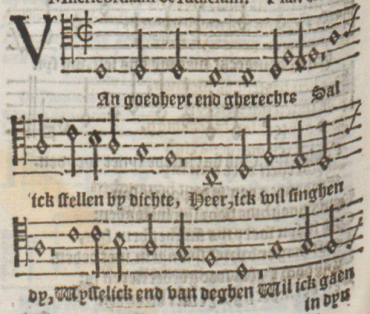 Misericordiam & iudicium.
V
An goedheyt end gherechte Sal
ick stellen by dichte, Heer, ick wil singhen
dy, Wysselick end van deghen Wil ick gaen
in dyn